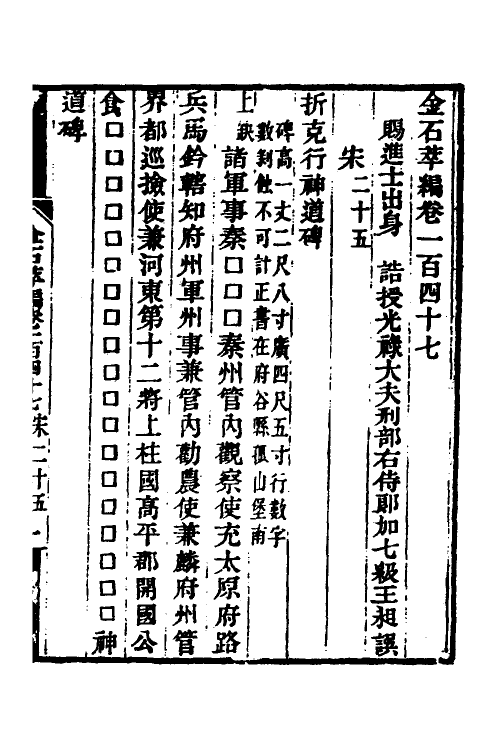 金石萃編卷一百四十七
賜進士出身 誥授光祿大夫刑部右侍郎加七級王昶譔
宋二十五
折克行神道碑
碑高一丈二尺八寸廣四尺五寸行數字
數剝蝕不可計正書在府谷縣孤山堡南
上缺諸軍事秦□□□秦州管內觀察使充太原府路
兵馬鈐轄知府州軍州事兼管內勸農使兼麟府州管
界都巡撿使兼河東第十二將上柱國高平郡開國公
食□□□□□□□□□□□□□□□□□□神
道碑
金石萃編卷一百四十七 宋二十五 一